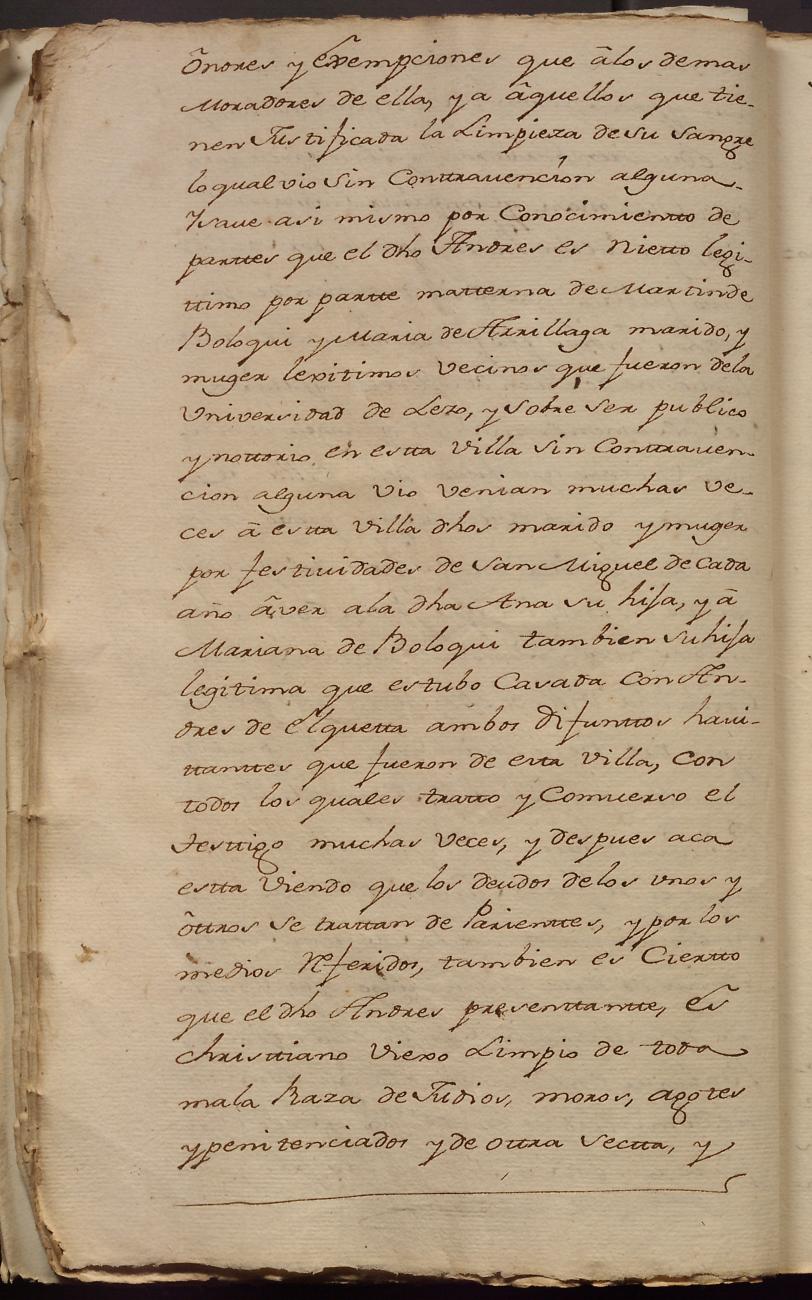 õnores y Exempciones que âlos demas
Moradores de ella, y a âquellos que tie-
nen Justificada la Limpieza de su sangre
lo qual vio sin Conttravencion alguna.
Ysave asi mismo por Conocimientto de
parttes que el dho Andres es Nietto legi-
ttimo por partte matterna de Martin de
Boloqui y Maria de Arrillaga marido, y
muger lexitimos vecinos que fueron dela
Universidad de Lezo, y sobre ser publico
y nottorio en estta Villa sin Conttraven-
cion alguna vio venian muchas ve-
ces â estta Villa dhos marido y muger
por festividades de San Miguel de Cada
año âver ala dha Ana su hija, y â
Mariana de Boloqui tambien su hija
legitima que estubo Casada con An-
dres de Elquetta ambos difunttos havi-
ttanttes que fueron de esta Villa, con
todos los quales tratto y Comverso el
testtigo muchas veces, y despues aca
estta Viendo que los deudos delos unos y
ôttros se trattan de Parienttes, y por los
medios Referidos, tambien es Ciertto
que el dho Andres presenttantte, es
Christtiano Viexo Limpio de toda
mala Raza de Judios, moros, agotes
y penitenciados y de ottra sectta, y